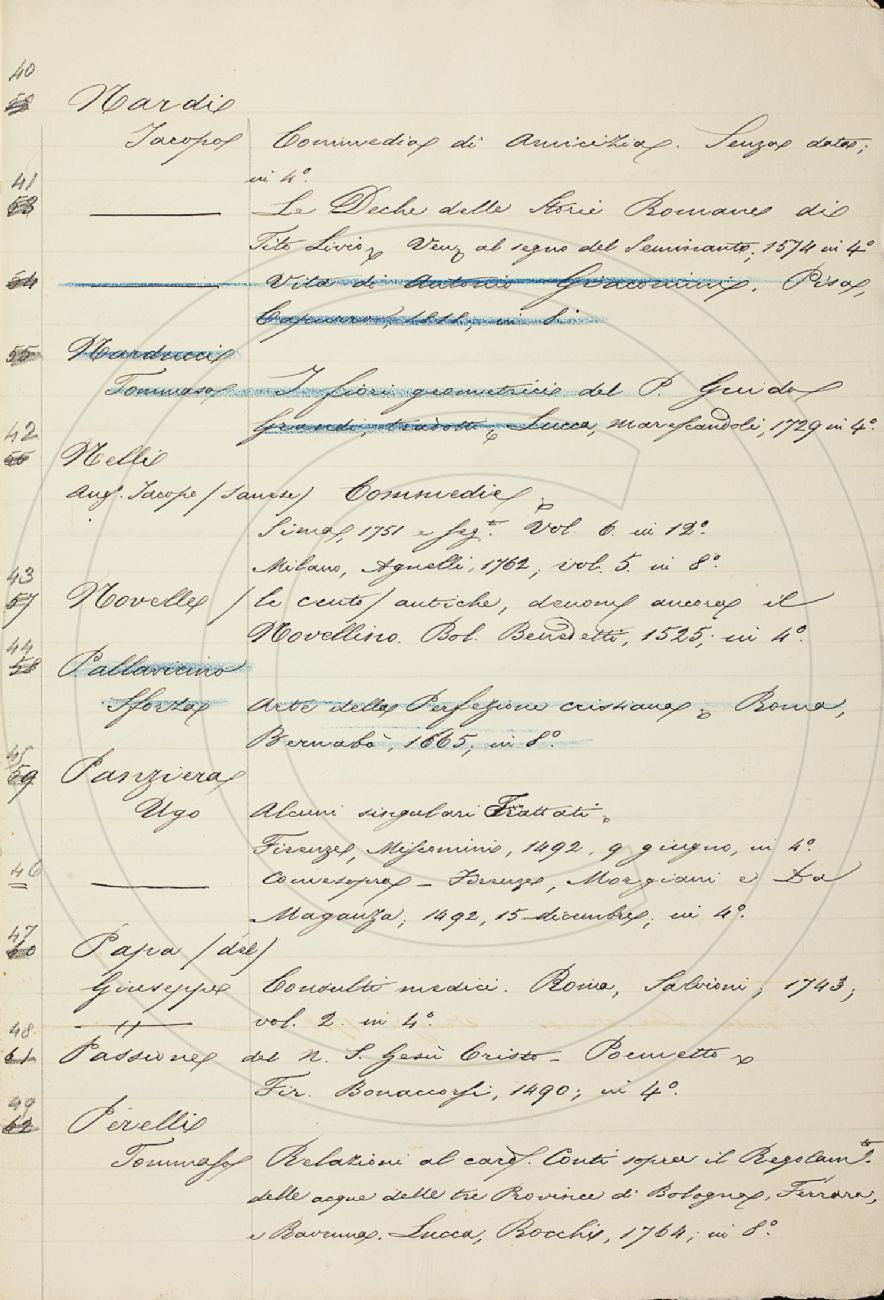 40
52 Nardi
Jacopo Commedia di Amicizia. Senza data;
in 4º.
41
53 Le Deche delle Storie Romane di
Tito Livio, Venz al segno del Seminanto; 1574 in 4º
54 Vita di Antonio Giacomini. Pisa,
Capurro, 1818; in 8º
55 Narducci
Tommaso I fiori geometrici del P. Guido
Grandi, tradotti, Lucca, Marescandoli, 1729 in 4º.
42
56 Nelli
Ang.º Jacopo (Sanese) Commedie,
Siena, 1751 e seg.ti Vol. 6. in 12º.
Milano, Agnelli, 1762; vol. 5. in 8º.
43
57 Novelle (le cento) antiche, denom ancora il
Novellino. Bol. Benedetti, 1525; in 4º.
44
58 Pallavicino
Sforza Arte della Perfezione cristiana, Roma,
Bernabò, 1665; in 8º.
45
59 Panziera
Ugo Alcuni singulari Trattati,
Firenze, Miscomini, 1492, 9 giugno, in 4º.
46
Comesopra - Firenze, Morgiani e Da
Maganza; 1492, 15 dicembre; in 4º.
47
60 Papa (del)
Giuseppe Consulti medici. Roma, Salvioni; 1743;
vol. 2. in 4º.
48
61 Passione del N. S. Gesù Cristo - Poemetto,
Fir. Bonaccorsi, 1490; in 4º.
49
62 Perelli
Tommaso Relazioni al card. Conti sopra il Regolam.to
delle acque delle tre Province di Bologna, Ferrara,
e Ravenna. Lucca, Rocchi, 1764; in 8º.